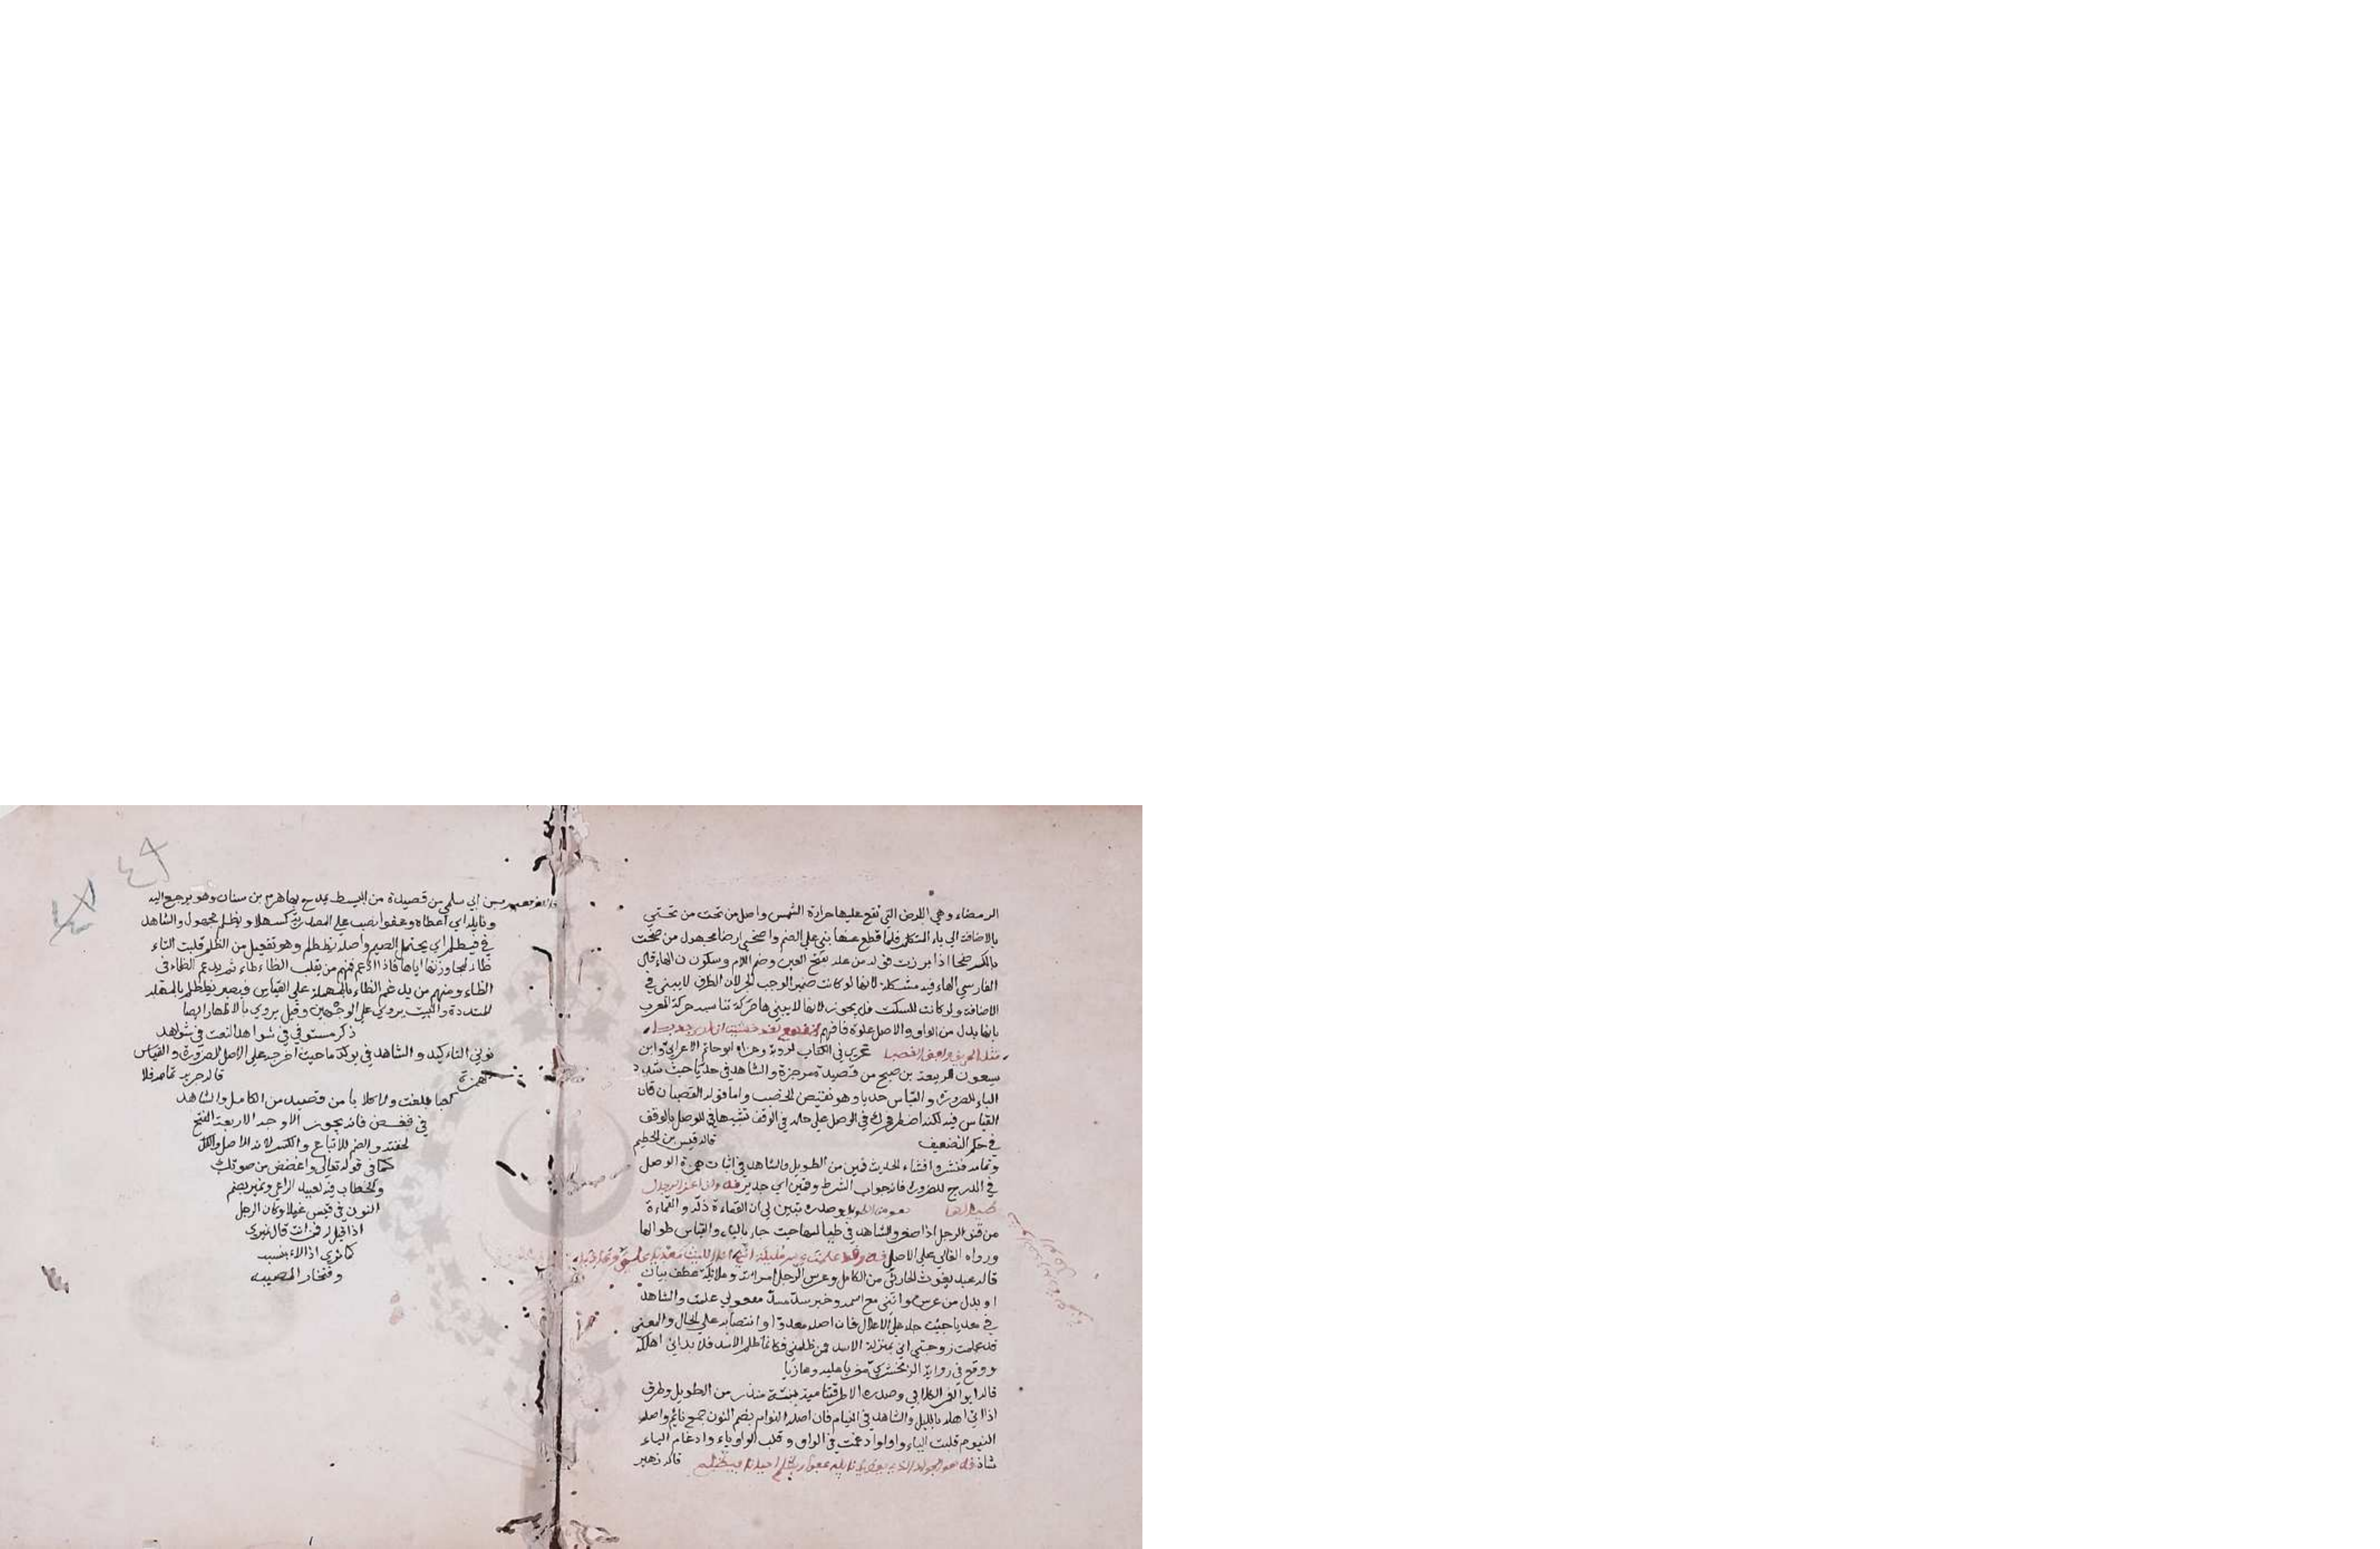 الرمضاء وهي الارض التي تقع عليها حرارة الشمس واصل من تحت من تحتي
بالاضافة الي ياء المتكلم فلما قطع عنها بني علي الضم واضحي ارضا مجهول من ضحت
بالكسر ضحا اذا برزت قوله من عله بفتح العين وضم اللام وسكون الهاء قال
الفارسي الهاء فيه مشكلة لانها لو كانت ضمير الوجب الجر لان الظرف لا يبني في
الاضافة ولو كانت للسكت فلم يجوز لانها لا يبني ها حركة تناسبه حركة المعرب
بانها بدل من الواو والاصل علوه فافهم لقد خشيت ان اري جدبا
مثل الحريق وافق القصبا عزي في الكتاب لروبة وعزاه ابو حاتم الاعرابي وابن
يسعون لربيعة بن صبح من قصيدة مرجزة والشاهد في جدبا حيث شدد
الباء للضرورة والقياس جدبا وهو نقيض الخصب واما قوله القصبا فان كان
القياس فيه لكنه اضطر في الوصل علي حاله في الوقف تشبيها في الوصل بالوقف
في حكم التضعيف قاله قيس بن الخطيم
وتمامه فنشر وافشاء الحديث قمين من الطويل والشاهد في اثبات همزة الوصل
في الدرج للضرورة فانه جواب الشرط وقمين اي جدير قه وان اعز الرجال
طيالها هو من الطويل وصدره تبين لي ان القماءة ذلة والقماءة
من قنو الرجل اذا صغر والشاهد في طيالها حيث جاء بالياء والقياس طوالها
ورواه القالي علي الاصل قه وقد علمت عرسي مليكة انني انا الليث معديا علي وعاديا
قاله عبد يغوث الحارثي من الكامل وعرس الرجل امراته ومليكة عطف بيان
او بدل من عرسي وانني مع اسمه وخبره سد مسد مفعولي علمت والشاهد
في معديا حيث جاء علي الاعلال فان اصله معدوا وانتصابه علي الحال والمعني
قد علمت زوجتي اني بمنزلة الاسد فمن ظلمني فكانما ظلم الاسد فلا بد اني اهلكه
ووقع في رواية الزمخشري مغزيا عليه وغازيا
قاله ابو الغمر الكلابي وصدره الا طرقتنا مية بنة منذر من الطويل وطرق
اذا اتي اهله بالليل والشاهد في النيام فان اصله النوام بضم النون جمع نائم واصله
النيوم قلبت الياء واوا وادغمت في الواو وقلب الواو ياء وادغام الياء
شاذ قه هو الجواد الذي يعطيك نايله عفوا ويظلم احيانا فيظلم قاله زهير
بن ابي سلمي من قصيدة من البسيط يمدح بها هرم بن سنان وهو يرجع اليه
ونايله اي اعطاه وعفوا نصب علي المصدرية كسهلا ويظلم مجهول والشاهد
في فيظلم اي يحتمل الضيم واصله يظطلم وهو تفعيل من الظلم قلبت التاء
ظاء لمجاورتها اياها فاذا ادغم فمنهم من يقلب الظاء طاء ثم يدغم الظاء في
الظاء ومنهم من يدغم الظاء بالمهملة علي القياس فيصير يطلم بالمهملة
المشددة والبيت يروي علي الوجهين وقيل يروي بالاظهار ايضا
ذكر مستوفي في شواهد النعت في شواهد
نوني التاكيد والشاهد في يوكد ما حيث اخرجه علي الاصل للضرورة والقياس
همزة قاله جرير تمامه فلا
كعبا بلغت ولا كلابا من قصيدة من الكامل والشاهد
في فغض فانه يجوز الاوجه الاربعة الفتح
لخفته والضم للاتباع والكسر لانه الاصل والفك
كما في قوله تعالي واغضض من صوتك
والخطاب فيه لعبيد الراعي ونمير بضم
النون في قيس غيلان وكان الرجل
اذا قيل له فمن انت قال نميري
كما تري اذ لا بنسبه
وفتخار المصيبه